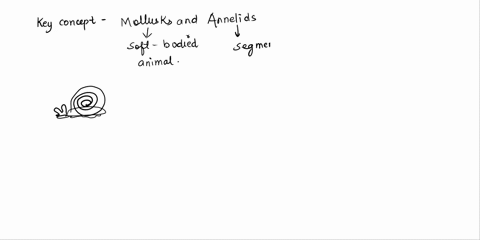 Key concept - Mollusks and Annelids
soft-bodied segmer
animal.